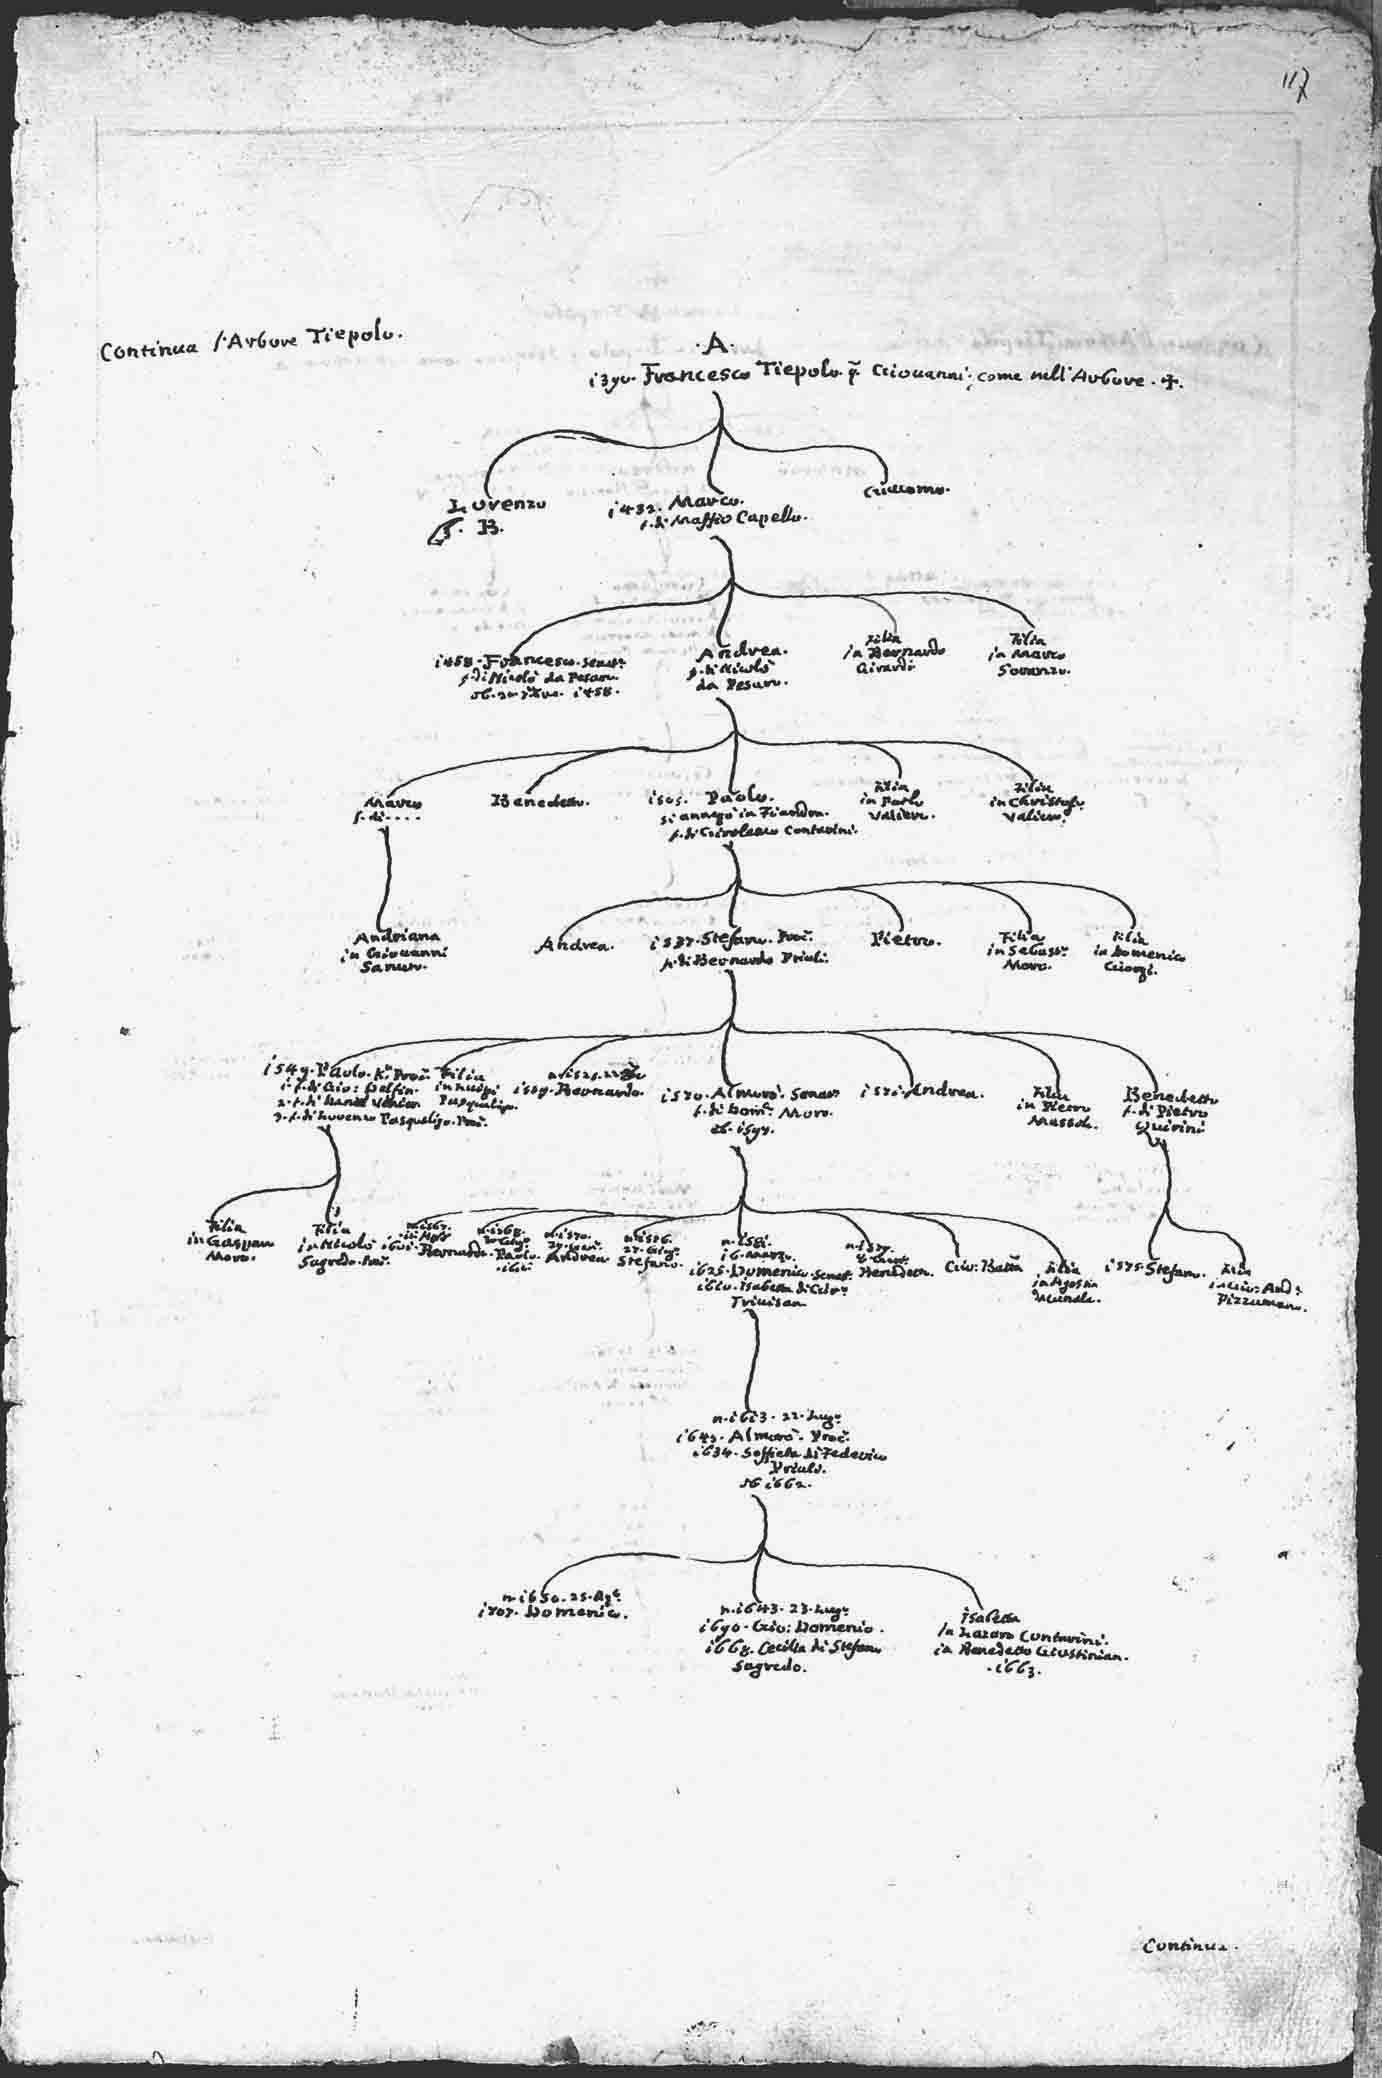 117
Continua l'Arbore Tiepolo.
.A.
1390. Francesco Tiepolo q. Giovanni, come nell'Arbore. +.
Lorenzo
B.
1432. Marco.
f. di Maffio Capello.
Giacomo.
1458. Francesco. Senat.r
f. di Nicolò da Pesaro.
1458.
Andrea.
f. di Nicolò
da Pesaro.
Filia
in Bernardo
Girardi
Filia
in Marco
Soranzo.
Marco
f. di ....
Benedetto.
1505. Paolo.
si annegò in Fiandra.
f. di Girolamo Contarini.
Filia
in Paolo
Valier.
Filia
in Christofo
Valier.
Andriana
in Giovanni
Sanudo.
Andrea.
1537. Stefano. Proc.
f. di Bernardo Priuli.
Pietro.
Filia
in Sebast.
Moro.
Filia
in Domenico
Giorgi.
1549. Paolo. K. Proc.
1. f. di Gio: Delfin.
2. f. di Daniel Venier
3. f. di Lorenzo Pasqualigo. Proc.
Filia
in Luigi
Pasqualigo.
n. 1521.
1509. Bernardo.
1570. Almorò. Senat.
f. di Dom. Moro.
ob. 1597.
1571. Andrea.
Filia
in Pietro
Benedetto
f. di Pietro
Quirini
Filia
in Gaspar
Moro.
Filia
in Nicolò
Sagredo. Proc.
n. 1567.
1601. Bernardo.
n. 1568.
Paolo.
n. 1570.
Andrea
n. 1576.
Stefano.
n. 1581.
16. Marzo.
1625. Domenico. Senat.
1610. Isabetta di
Trivisan
n. 1579.
Benedetto.
Gio: Batta
Filia
in Agostin
1575. Stefano.
Filia
in Gio: And:
Pizzamano.
n. 1613. 22. Lug.
1643. Almorò. Proc.
1634. Soffietta di Federico
Priuli.
ob 1662.
n. 1650. 25. Ag.
1707. Domenico.
n. 1643. 23. Lug.
1690. Gio: Domenio.
1668. Cecilia di Stefano
Sagredo.
Isabetta
in Lazaro Contarini.
in Benedetto Giustinian.
.1663.
Continua.